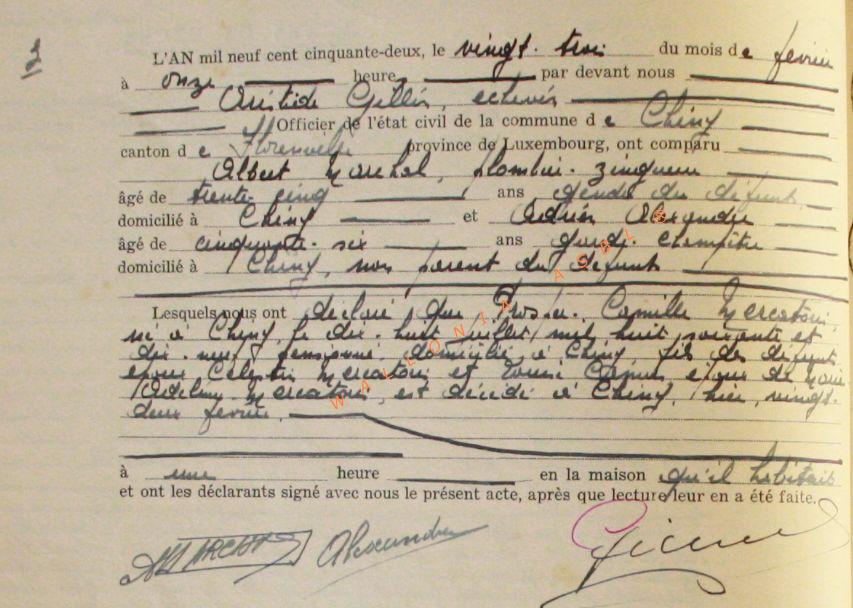 2
L'AN mil neuf cent cinquante-deux, le vingt-trois du mois de février
à onze heure par devant nous
Aristide Gillet, échevin
Officier de l'état civil de la commune de Chiny
canton de Florenville province de Luxembourg, ont comparu
Albert Marchal, plombier-zingueur
âgé de trente cinq ans gendre du défunt,
domicilié à Chiny et Adrien Alexandre
âgé de cinquante-six ans garde-champêtre
domicilié à Chiny, non parent du défunt
Lesquels nous ont déclaré que Camille Mercatoris,
né à Chiny, le dix-huit juillet mil huit soixante et
dix-neuf pensionné, domicilié à Chiny, fils des défunts
époux Célestin Mercatoris et époux de Marie
Mercatoris, est décédé à Chiny, hier, vingt-
deux février,
à une heure en la maison qu'il habitait
et ont les déclarants signé avec nous le présent acte, après que lecture leur en a été faite.
A MARCHAL Alexandre
WALLONIA ASBL